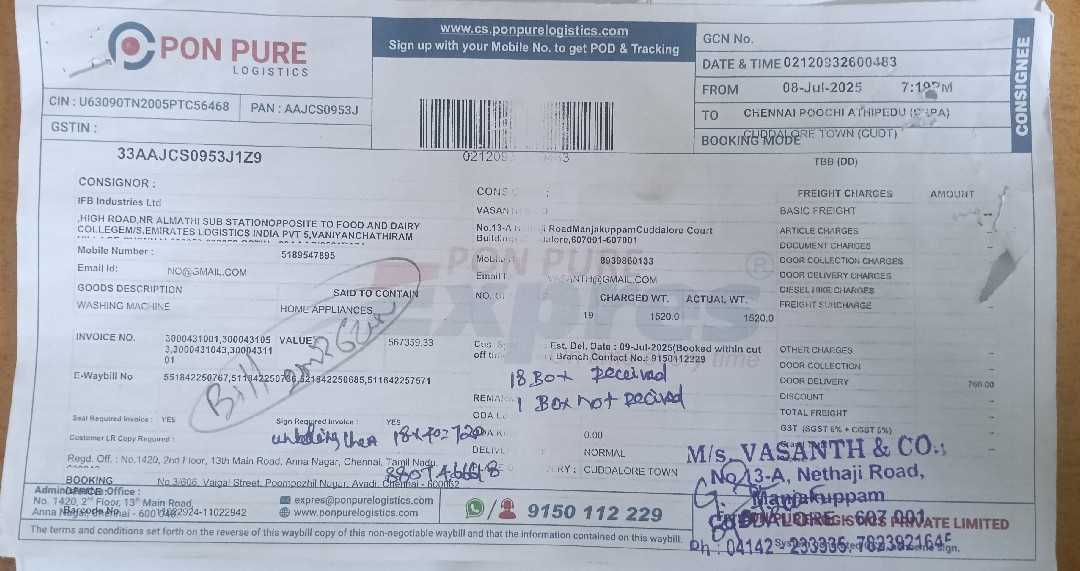 PON PURE
LOGISTICS
www.cs.ponpurelogistics.com
Sign up with your Mobile No. to get POD & Tracking
GCN No.
DATE & TIME 02120932600483
FROM 08-Jul-2025 7:19PM
TO CHENNAI POOCHI ATHIPEDU
CUDDALORE TOWN (CUDT)
BOOKING MODE
TBB (DD)
CONSIGNEE
CIN : U63090TN2005PTC56468 PAN : AAJCS0953J
GSTIN :
33AAJCS0953J1Z9
CONSIGNOR :
IFB Industries Ltd
,HIGH ROAD,NR ALMATHI SUB STATIONOPPOSITE TO FOOD AND DAIRY
COLLEGEM/S.EMIRATES LOGISTICS INDIA PVT 5,VANIYANCHATHIRAM
Mobile Number : 5189547895
Email Id: NO@GMAIL.COM
GOODS DESCRIPTION SAID TO CONTAIN
WASHING MACHINE HOME APPLIANCES
INVOICE NO. 3000431001,300043105 VALUE 567359.33
3,3000431043,30004311
01
E-Waybill No 551842250767,511842250736,521842250685,511842257571
Bill
Seal Required Invoice : YES Sign Required Invoice : YES
Customer LR Copy Required :
18x40=720
Regd. Off : No.1420, 2nd Floor, 13th Main Road, Anna Nagar, Chennai, Tamil Nadu
BOOKING No 3/606, Vaigai Street, Poompozhil Nagar, Avadi, Chennai - 600062
VASANTH
No.13-A RoadManjakuppamCuddalore Court
Building 607001-607001
8939860133
Email VASANTH@GMAIL.COM
CHARGED WT. ACTUAL WT.
19 1520.0 1520.0
PON PURE
Express
Est. Del. Date : 09-Jul-2025(Booked within cut
off Branch Contact No.: 9150112229
18 Box Received
1 Box not Recived
0.00
NORMAL
CUDDALORE TOWN
FREIGHT CHARGES AMOUNT
BASIC FREIGHT
ARTICLE CHARGES
DOCUMENT CHARGES
DOOR COLLECTION CHARGES
DOOR DELIVERY CHARGES
DIESEL HIKE CHARGES
FREIGHT SURCHARGE
OTHER CHARGES
DOOR COLLECTION
DOOR DELIVERY 760.00
DISCOUNT
TOTAL FREIGHT
GST (SGST 6% + CGST 6%)
M/s. VASANTH & CO.;
No.13-A, Nethaji Road,
Manjakuppam
CUDDALORE - 607 001
Ph : 04142 - 233335
PONPURE LOGISTICS PRIVATE LIMITED
Office :
No. 1420, 2nd Floor, 13th Main Road,
Anna Nagar, Chennai - 600
Barcode No. 11022924-11022942
expres@ponpurelogistics.com
www.ponpurelogistics.com
9150 112 229
The terms and conditions set forth on the reverse of this waybill copy of this non-negotiable waybill and that the information contained on this waybill.